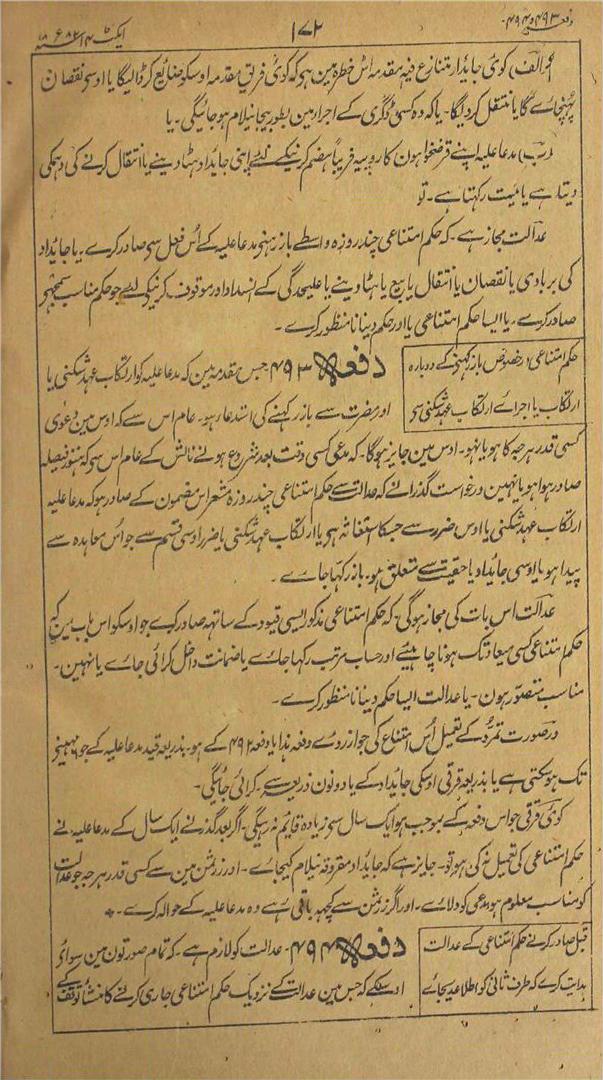 دفعہ ۴۹۳ و ۴۹۴
۱۷۲
ایکٹ ۱۴ ۱۸۸۲ء
(الف) کوئی جایداد متنازع فیہ مقدمہ اس خطرہ مین ہی کہ کوئی فریق مقدمہ اوسکو ضائع کر ڈالیگا یا اوسی نقصان
پہنچائے گا یا منتقل کر دیگا۔ یا کہ وہ کسی ڈگری کے اجرا مین بطور بیجا نیلام ہو جائیگی۔ یا
(ب) مدعا علیہ اپنے قرضخواہون کا روپیہ فریباً ہضم کرنیکے لئے اپنی جائیداد ہٹا دینے یا انتقال کرنے کی دہمکی
دیتا ہے یا نیت رکہتا ہے۔ تو
عدالت مجاز ہے۔ کہ حکم امتناعی چند روزہ واسطے باز رہنی مدعا علیہ کے اُس فعل سی صادر کرے۔ یا جائیداد
کی بربادی یا نقصان یا انتقال یا بیع یا ہٹا دینے یا علیحدگی کے انسداد اور موقوف کرنیکے لیے جو حکم مناسب سمجہی
صادر کرے۔ یا ایسا حکم امتناعی یا اور حکم دینا نامنظور کرے۔
حکم امتناعی درخصوص باز رکہنی کے دوبارہ
ارتکاب یا اجرائے ارتکاب عہد شکنی سی
دفعہ ۴۹۳ جس مقدمہ مین کہ مدعا علیہ کو ارتکاب عہد شکنی یا
اور مضرت سے باز رکہنے کی استدعا ہو۔ عام اس سے کہ اوس مین دعوی
کسی قدر ہرجہ کا ہو یا نہو۔ اوس مین جایز ہوگا۔ کہ مدعی کسی وقت بعد شروع ہونے نالش کے عام اس سی کہ ہنوز فیصلہ
صادر ہوا ہو یا نہین درخواست گذرانے کہ عدالت سے حکم امتناعی چند روزہ مشعر اس مضمون کے صادر ہو کہ مدعا علیہ
ارتکاب عہد شکنی یا اوس ضرر سے جسکا استغاثہ ہی یا ارتکاب عہد شکنی یا ضرر اوسی قسم سے جو اُس معاہدہ سے
پیدا ہو یا اوسی جائیداد یا حقیت سے متعلق ہو۔ باز رکہا جاے۔
عدالت اس بات کی مجاز ہوگی۔ کہ حکم امتناعی مذکور ایسی قیود کے ساتہہ صادر کرے جو اوسکو اس باب مین کہ
حکم امتناعی کسی میعاد تک ہونا چاہیے اور حساب مرتب رکہا جاے یا ضمانت داخل کرائی جاے یا نہین۔
مناسب متصور ہون۔ یا عدالت ایسا حکم دینا نامنظور کرے۔
درصورت تمرد کے تعمیل اُس امتناع کی جو از روے دفعہ ہذا یا دفعہ ۴۹۲ کے ہو۔ بذریعہ قید مدعا علیہ کے جو چھہ مہینے
تک ہو سکتی ہے یا بذریعہ قرقی اوسکی جائیداد کے یا دونون ذریعہ سے۔ کرائی جائیگی۔
کوئی قرقی جو اس دفعہ کے بموجب ہو ایک سال سی زیادہ قائم نہ رہیگی۔ اگر بعد گذرنے ایک سال کے مدعا علیہ نے
حکم امتناعی کی تعمیل نہ کی ہو تو۔ جایز ہے کہ جائیداد مقروقہ نیلام کیجاے۔ اور زر ثمن مین سے کسی قدر ہرجہ جو عدالت
کو مناسب معلوم ہو مدعی کو دلاے۔ اور اگر زر ثمن سے کچہہ باقی رہے وہ مدعا علیہ کے حوالہ کرے۔
قبل صادر کرنے حکم امتناعی کے عدالت
ہدایت کرے کہ طرف ثانی کو اطلاع دیجاے
دفعہ ۴۹۴۔ عدالت کو لازم ہے۔ کہ تمام صورتون مین سوائے
اوسکے کہ جس مین عدالت کے نزدیک حکم امتناعی جاری کرنے کا منشا توقف کے